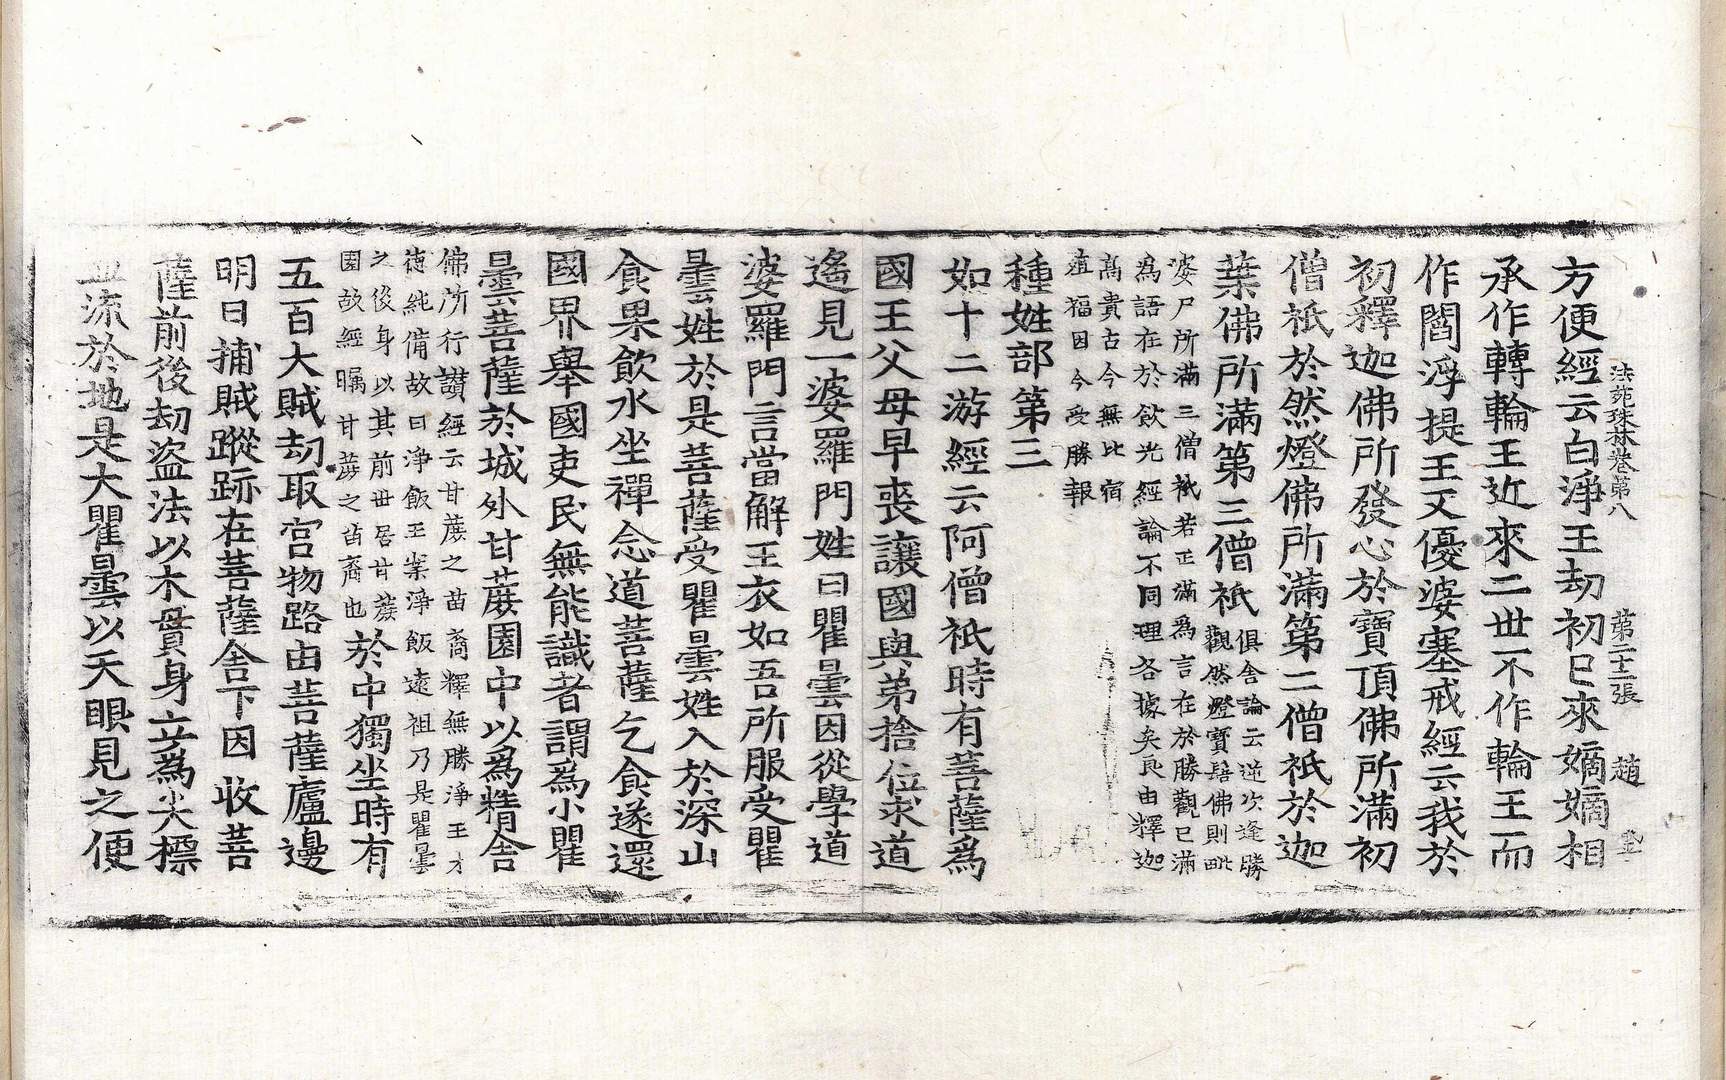 法苑珠林卷第八　第二十二張　趙
方便經云白淨王劫初已來嫡嫡相
承作轉輪王近來二世不作輪王而
作閻浮提王又優婆塞戒經云我於
初釋迦佛所發心於寶頂佛所滿初
僧祇於然燈佛所滿第二僧祇於迦
葉佛所滿第三僧祇
俱舍論云逆次逢勝
觀然燈寶髻佛則毗
婆尸所滿三僧祇若正滿為言在於勝觀已滿
為語在於飲光經論不同理各據矣良由釋迦
高貴古今無比宿
殖福因今受勝報
種姓部第三
如十二游經云阿僧祇時有菩薩為
國王父母早喪讓國與弟捨位求道
遙見一婆羅門姓曰瞿曇因從學道
婆羅門言當解王衣如吾所服受瞿
曇姓於是菩薩受瞿曇姓入於深山
食果飲水坐禪念道菩薩乞食遂還
國界舉國吏民無能識者謂為小瞿
曇菩薩於城外甘蔗園中以為精舍
佛所行讃經云甘蔗之苗裔釋無勝淨王才
德純備故曰淨飯王業淨飯遠祖乃是瞿曇
之後身以其前世居甘蔗
園故經矚甘蔗之苗裔也
於中獨坐時有
五百大賊劫取官物路由菩薩廬邊
明日捕賊蹤跡在菩薩舍下因收菩
薩前後劫盜法以木貫身立為尖摽
血流於地是大瞿曇以天眼見之便